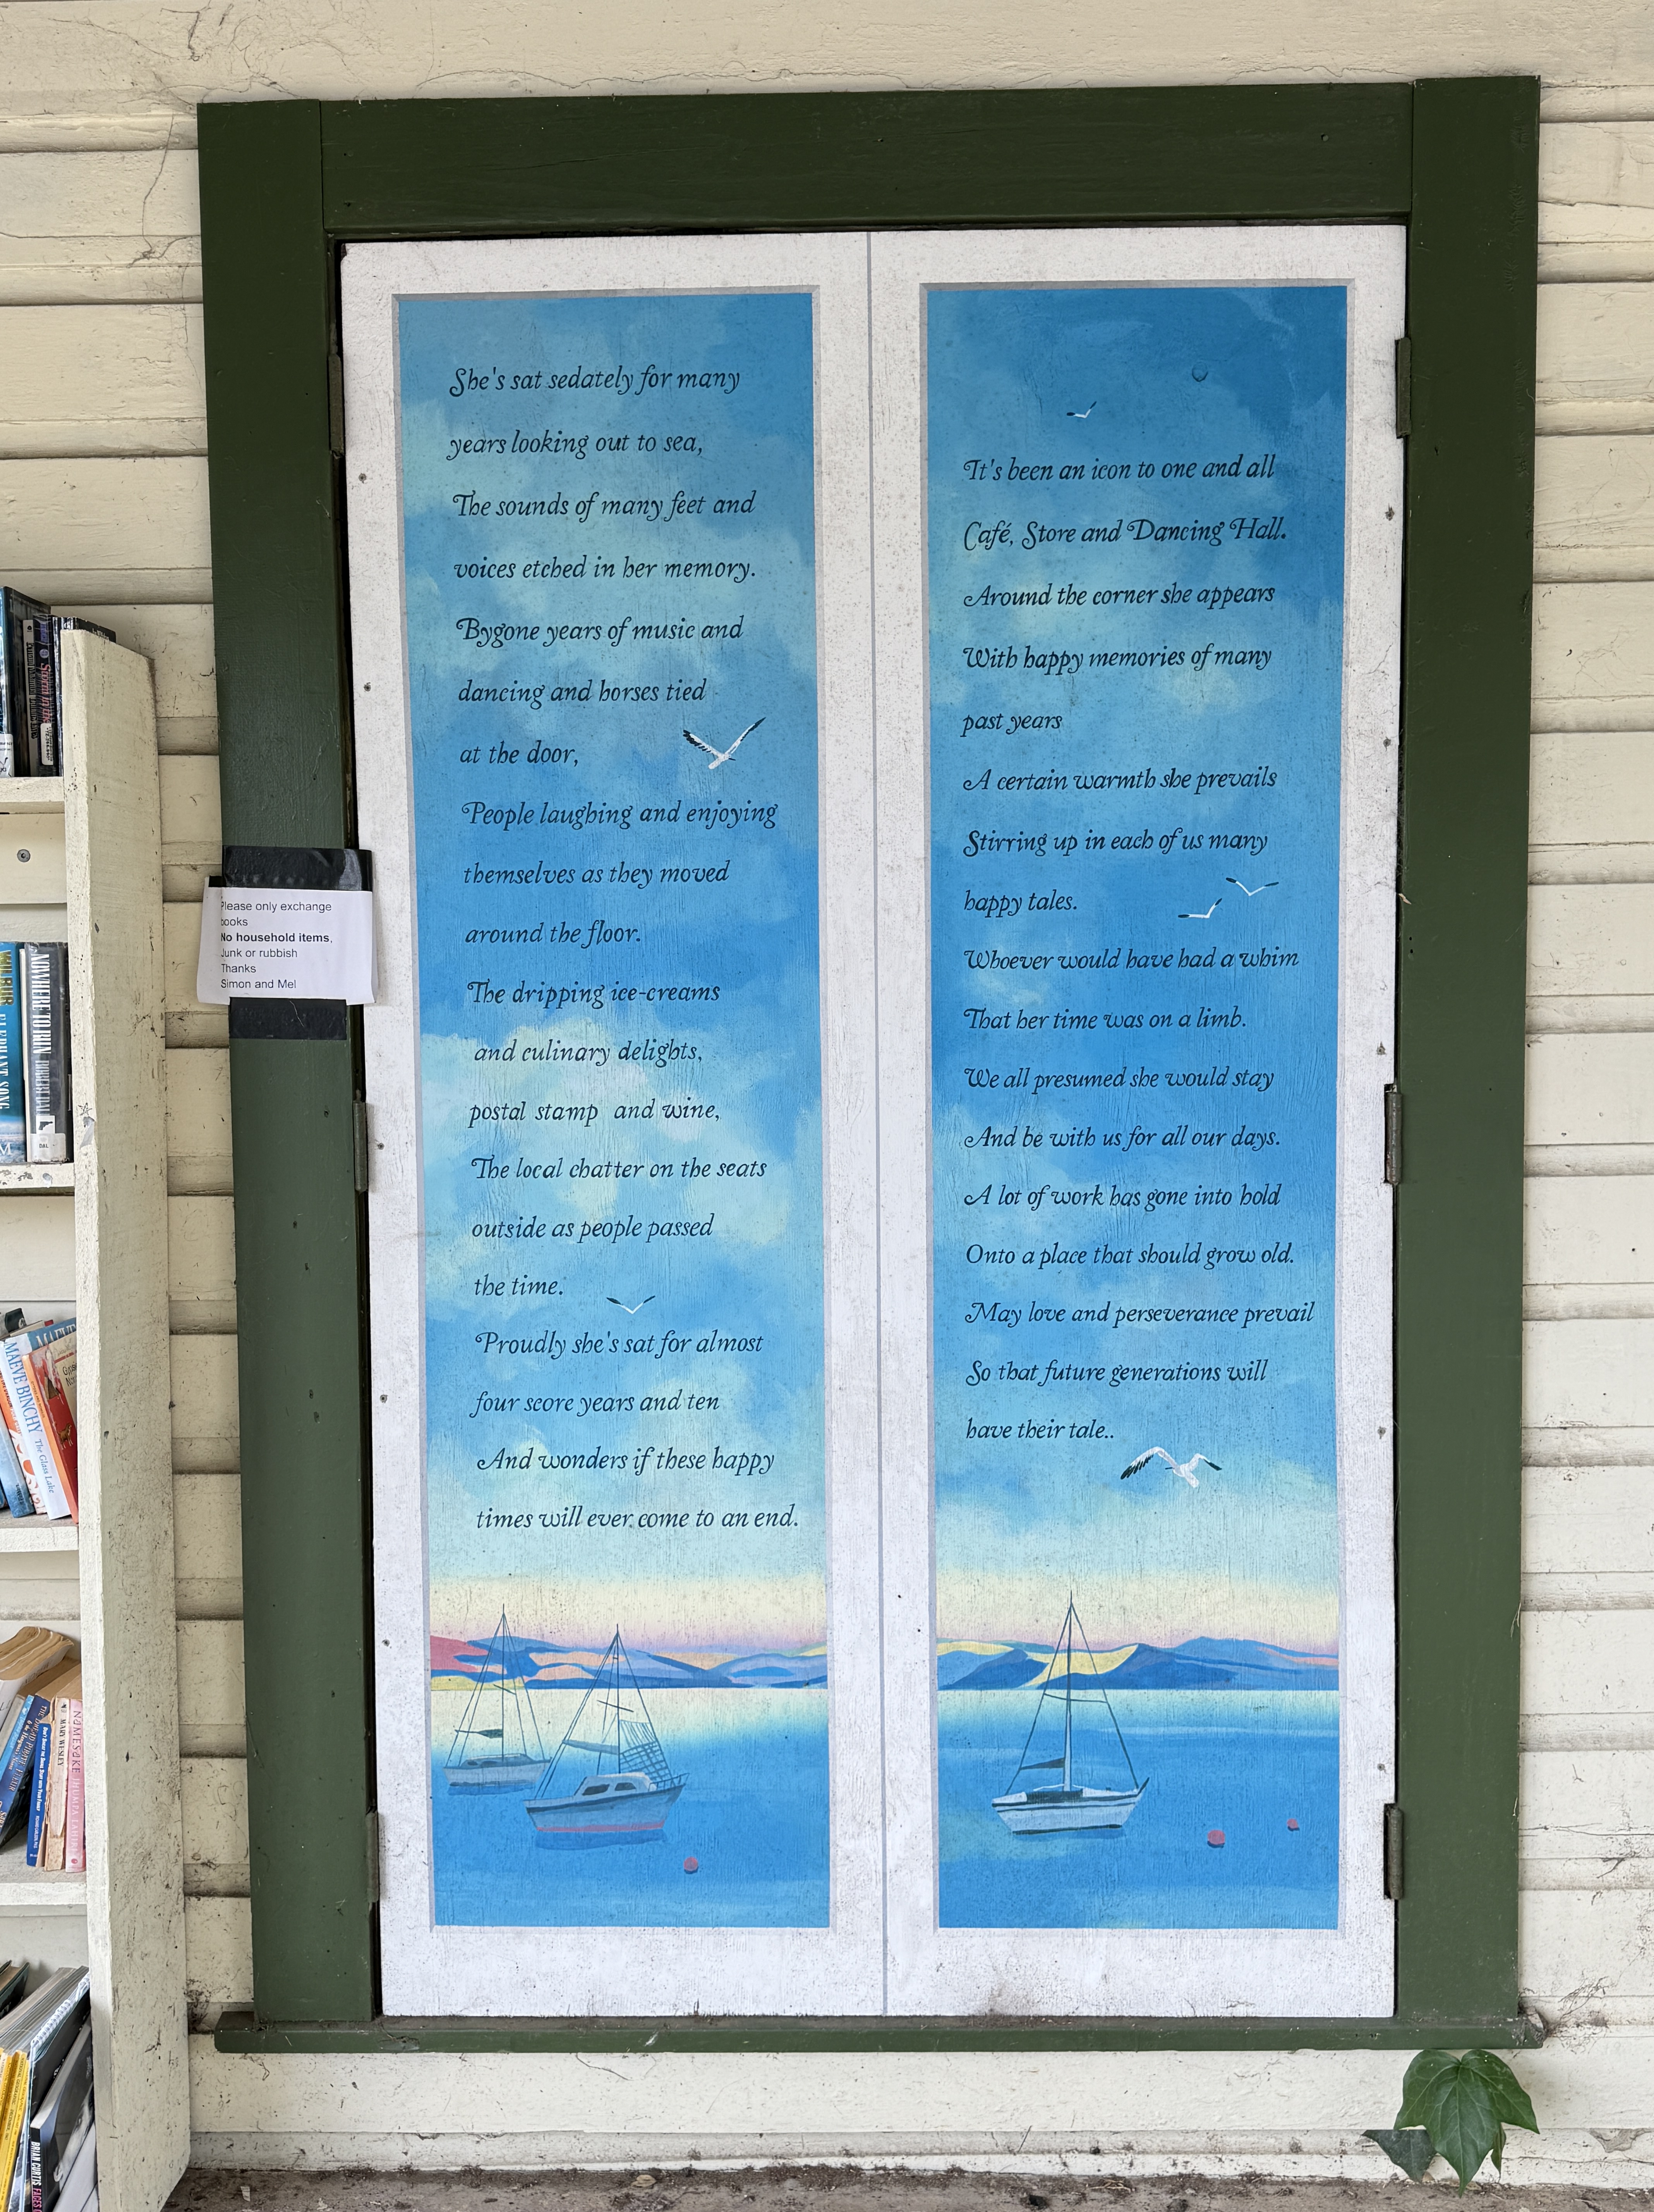 She's sat sedately for many
years looking out to sea,
The sounds of many feet and
voices etched in her memory.
Bygone years of music and
dancing and horses tied
at the door,
People laughing and enjoying
themselves as they moved
around the floor.
The dripping ice-creams
and culinary delights,
postal stamp and wine,
The local chatter on the seats
outside as people passed
the time.
Proudly she's sat for almost
four score years and ten
And wonders if these happy
times will ever come to an end.
It's been an icon to one and all
Café, Store and Dancing Hall.
Around the corner she appears
With happy memories of many
past years
A certain warmth she prevails
Stirring up in each of us many
happy tales.
Whoever would have had a whim
That her time was on a limb.
We all presumed she would stay
And be with us for all our days.
A lot of work has gone into hold
Onto a place that should grow old.
May love and perseverance prevail
So that future generations will
have their tale..
Please only exchange
books
No household items,
Junk or rubbish
Thanks
Simon and Mel
WILBUR
ELEPHANT SONG
NOWHERE TO RUN
DAL
MAEVE BINCHY The Glass Lake
MARY WESLEY
NAMESAKE JHUMPA LAHIRI
BRIAN CURTIS FACES